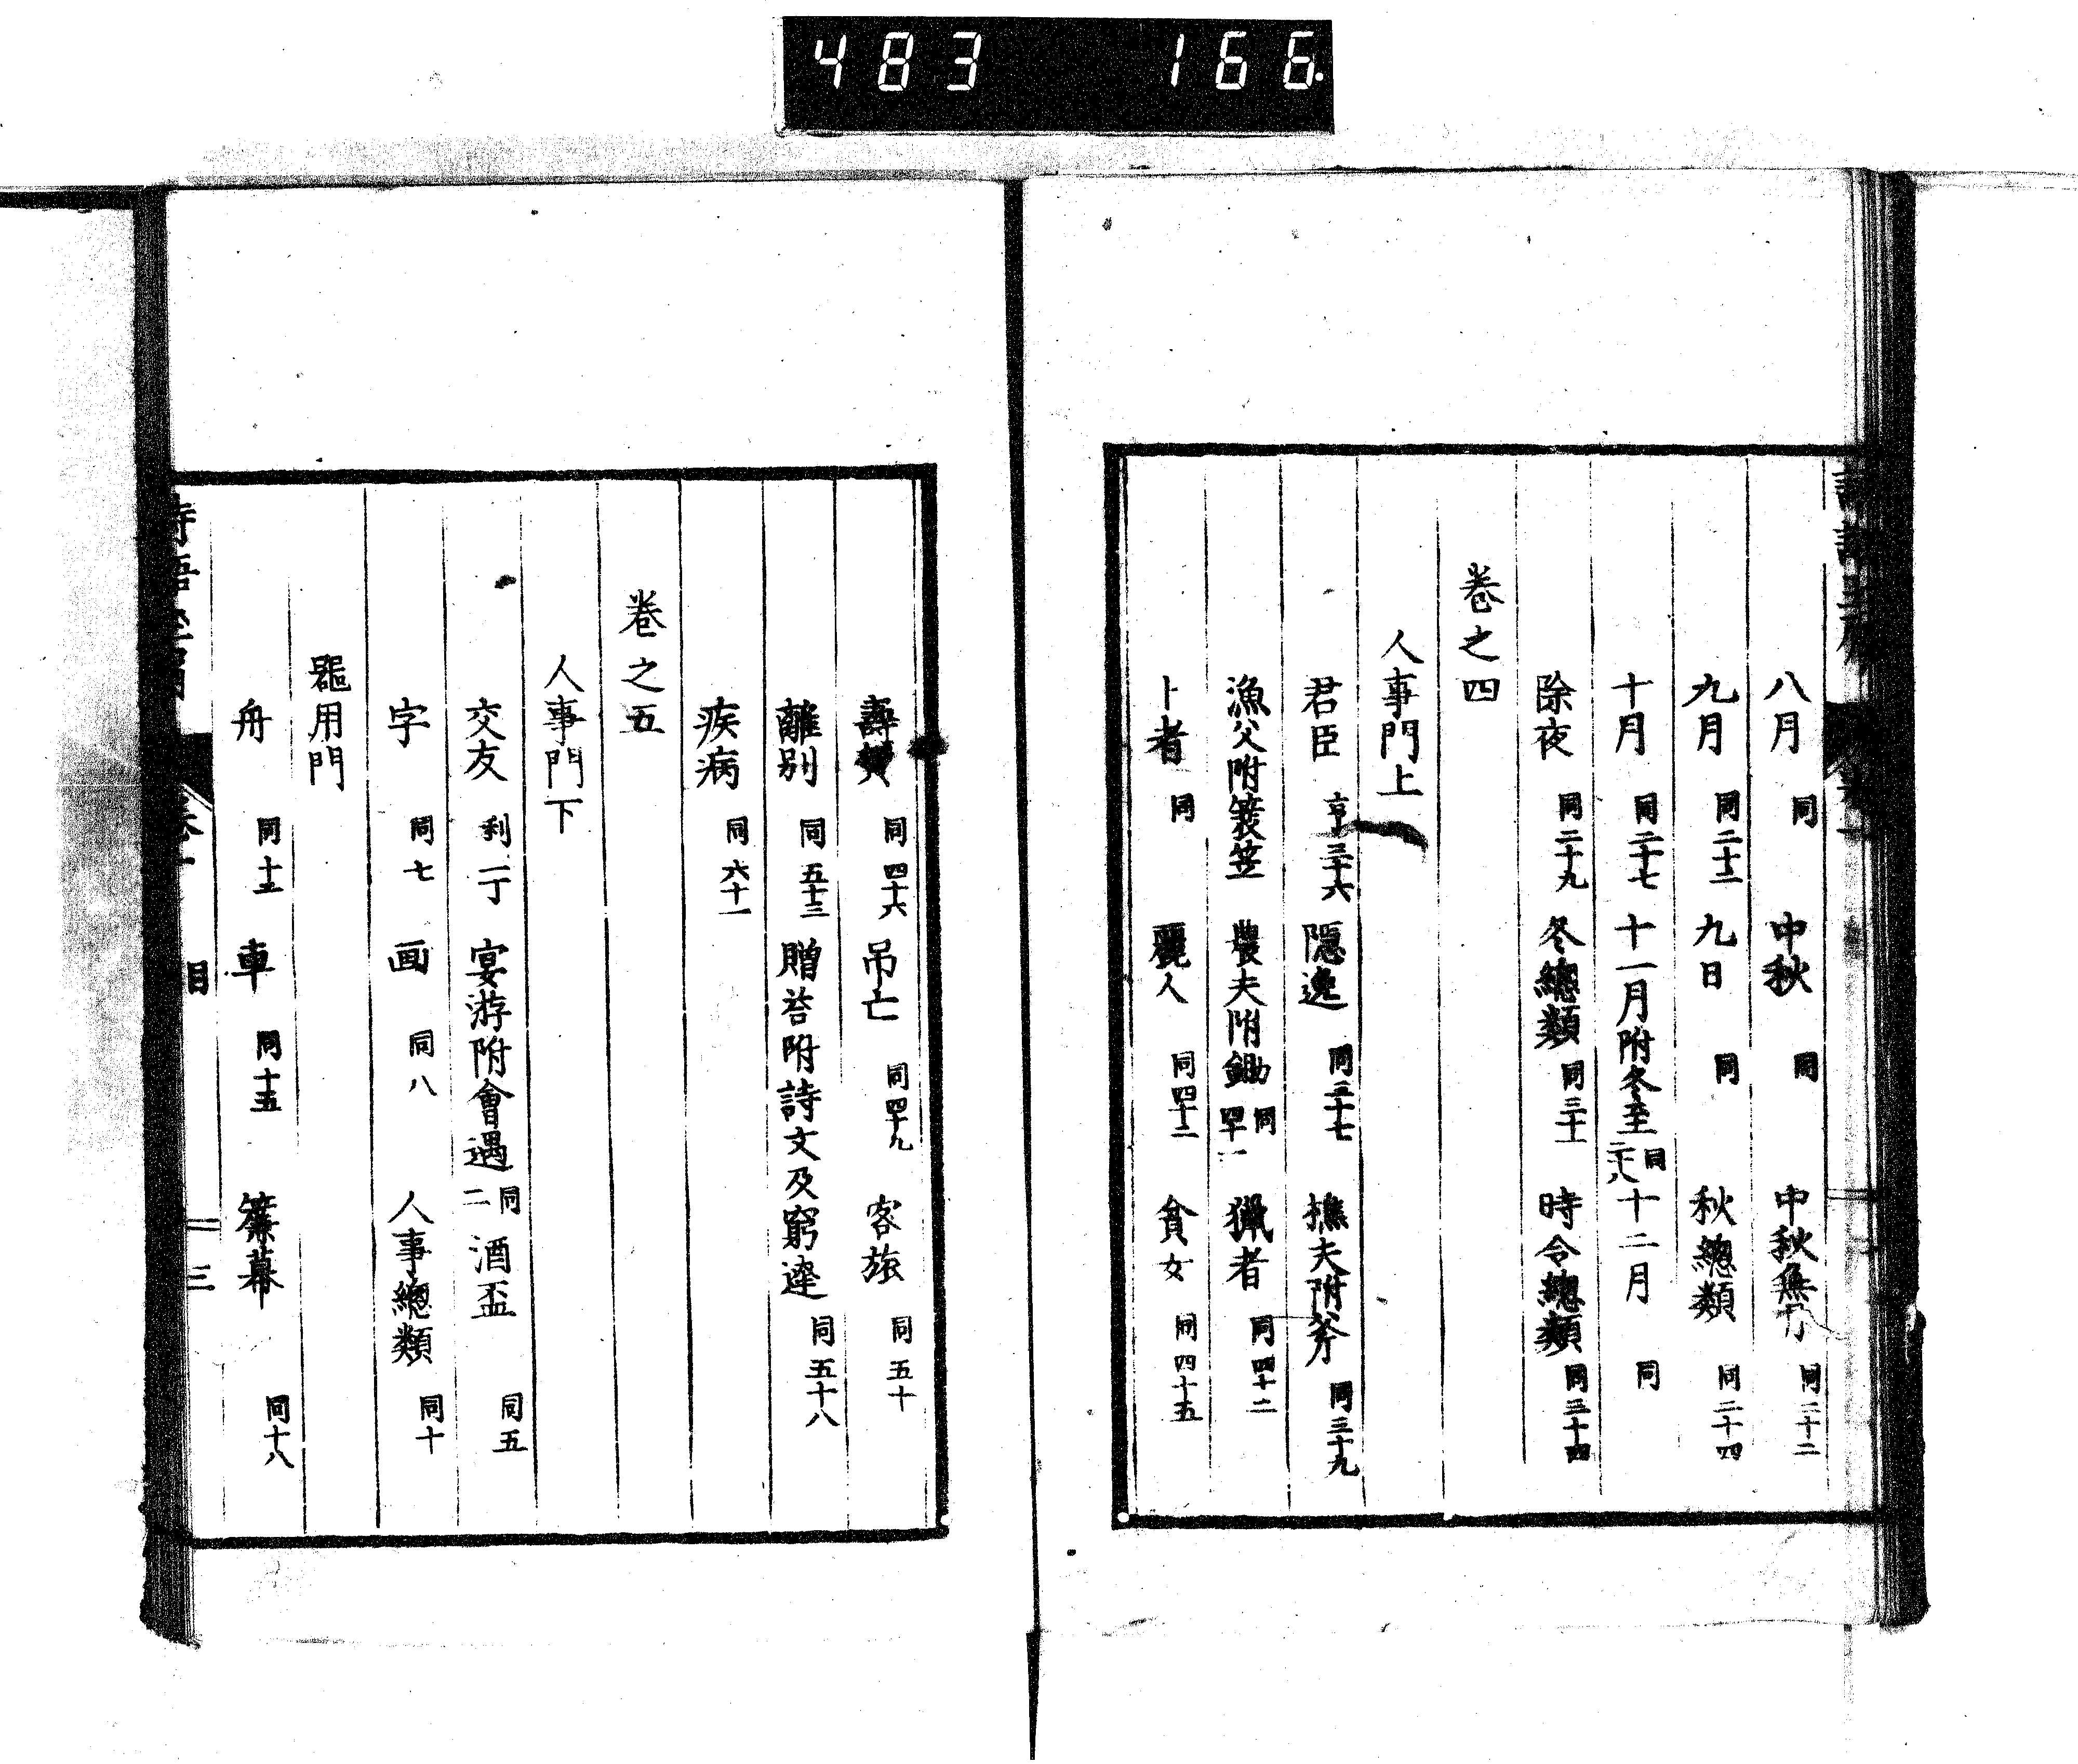 483 166
八月 同 中秋 同 中秋無月 同二十二
九月 同二十三 九日 同 秋總類 同二十四
十月 同二十七 十一月附冬至 同二十八 十二月 同
除夜 同二十九 冬總類 同三十 時令總類 同三十四
卷之四
人事門上
君臣 亨三十六 隱逸 同三十七 樵夫附斧 同三十九
漁父附簑笠 農夫附鋤 同四十一 獵者 同四十二
卜者 同 麗人 同四十二 貧女 同四十五
壽賀 同四十六 吊亡 同四十九 客旅 同五十
離別 同五十三 贈荅附詩文及窮達 同五十八
疾病 同六十一
卷之五
人事門下
交友 利一丁 宴游附會遇 同二 酒盃 同五
字 同七 画 同八 人事總類 同十
器用門
舟 同十三 車 同十五 簾幕 同十八
目 三